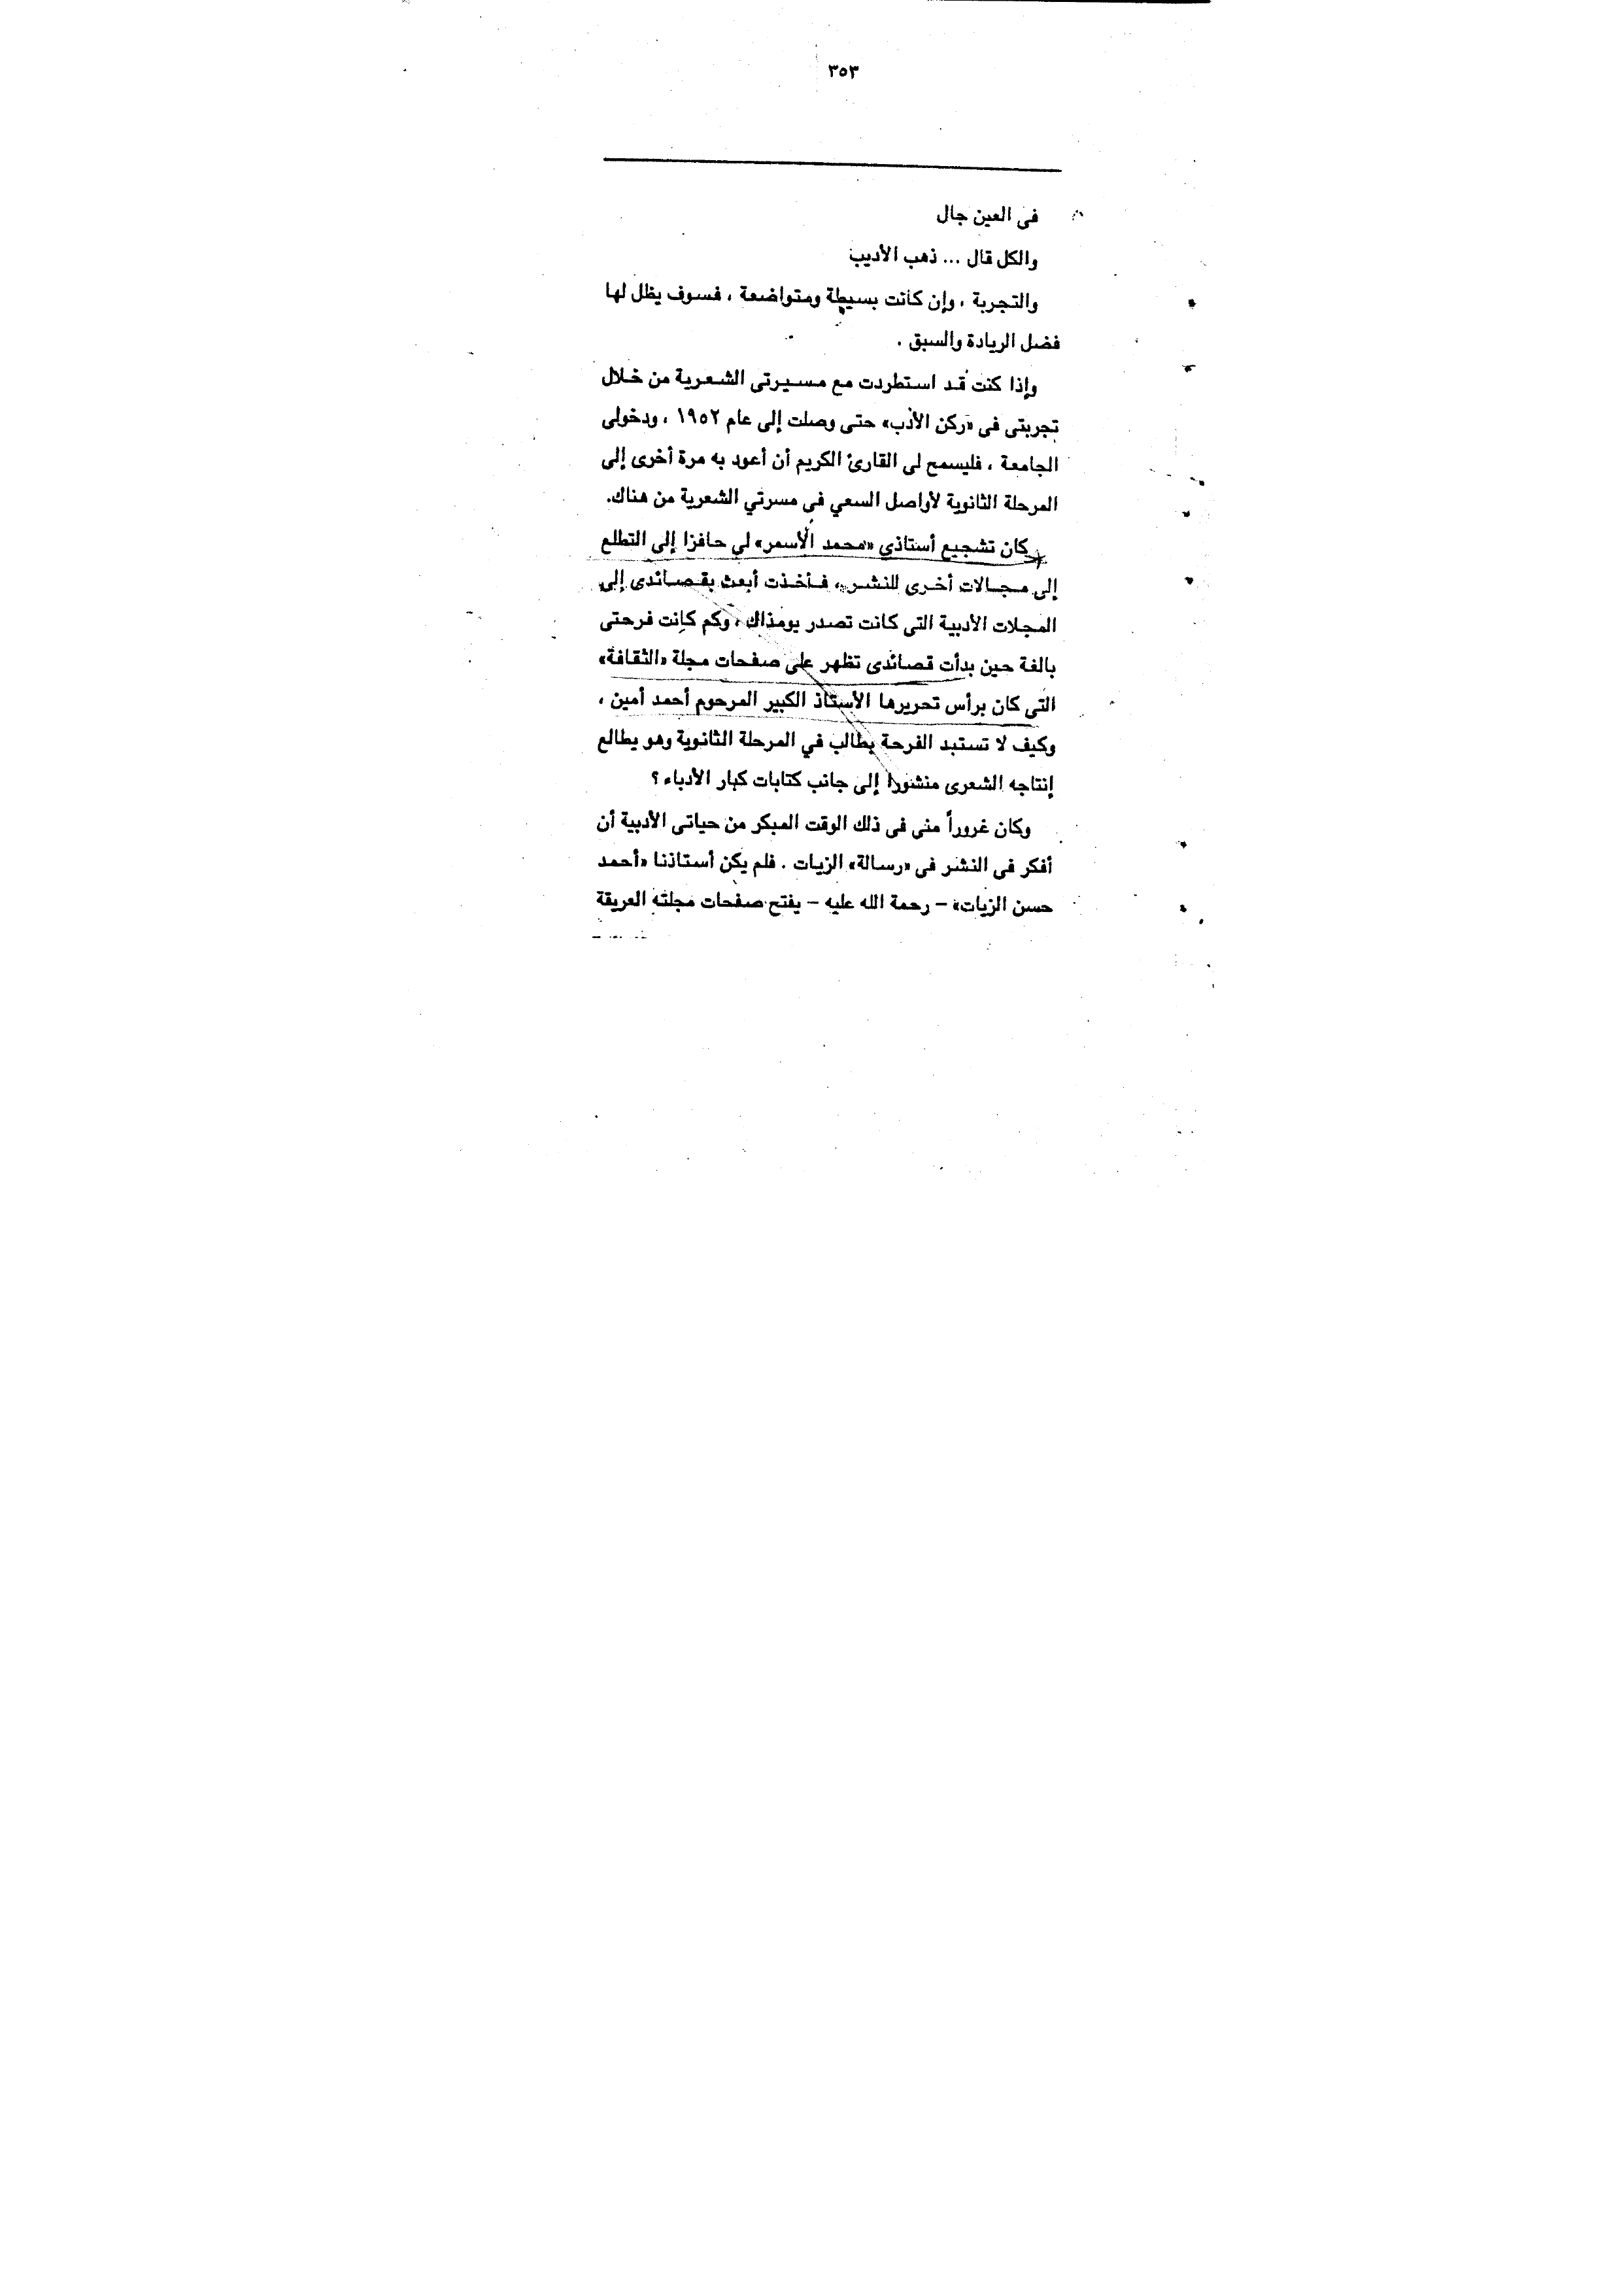 ٣٥٣
فى العين جال
والكل قال ... ذهب الأديب
والتجربة ، وإن كانت بسيطة ومتواضعة ، فسوف يظل لها
فضل الريادة والسبق .
وإذا كنت قد استطردت مع مسيرتى الشعرية من خلال
تجربتى فى «ركن الأدب» حتى وصلت إلى عام ١٩٥٢ ، ودخولى
الجامعة ، فليسمح لى القارئ الكريم أن أعود به مرة أخرى إلى
المرحلة الثانوية لأواصل السعي فى مسرتي الشعرية من هناك.
كان تشجيع أستاذي «محمد الأسمر» لي حافزا إلى التطلع
إلى مجالات أخرى للنشر ، فأخذت أبعث بقصائدى إلى
المجلات الأدبية التى كانت تصدر يومذاك ، وكم كانت فرحتى
بالغة حين بدأت قصائدى تظهر على صفحات مجلة «الثقافة»
التى كان يرأس تحريرها الأستاذ الكبير المرحوم أحمد أمين ،
وكيف لا تستبد الفرحة بطالب في المرحلة الثانوية وهو يطالع
إنتاجه الشعرى منشورا إلى جانب كتابات كبار الأدباء ؟
وكان غروراً منى فى ذلك الوقت المبكر من حياتى الأدبية أن
أفكر فى النشر فى «رسالة» الزيات . فلم يكن أستاذنا «أحمد
حسن الزيات» – رحمة الله عليه – يفتح صفحات مجلته العريقة